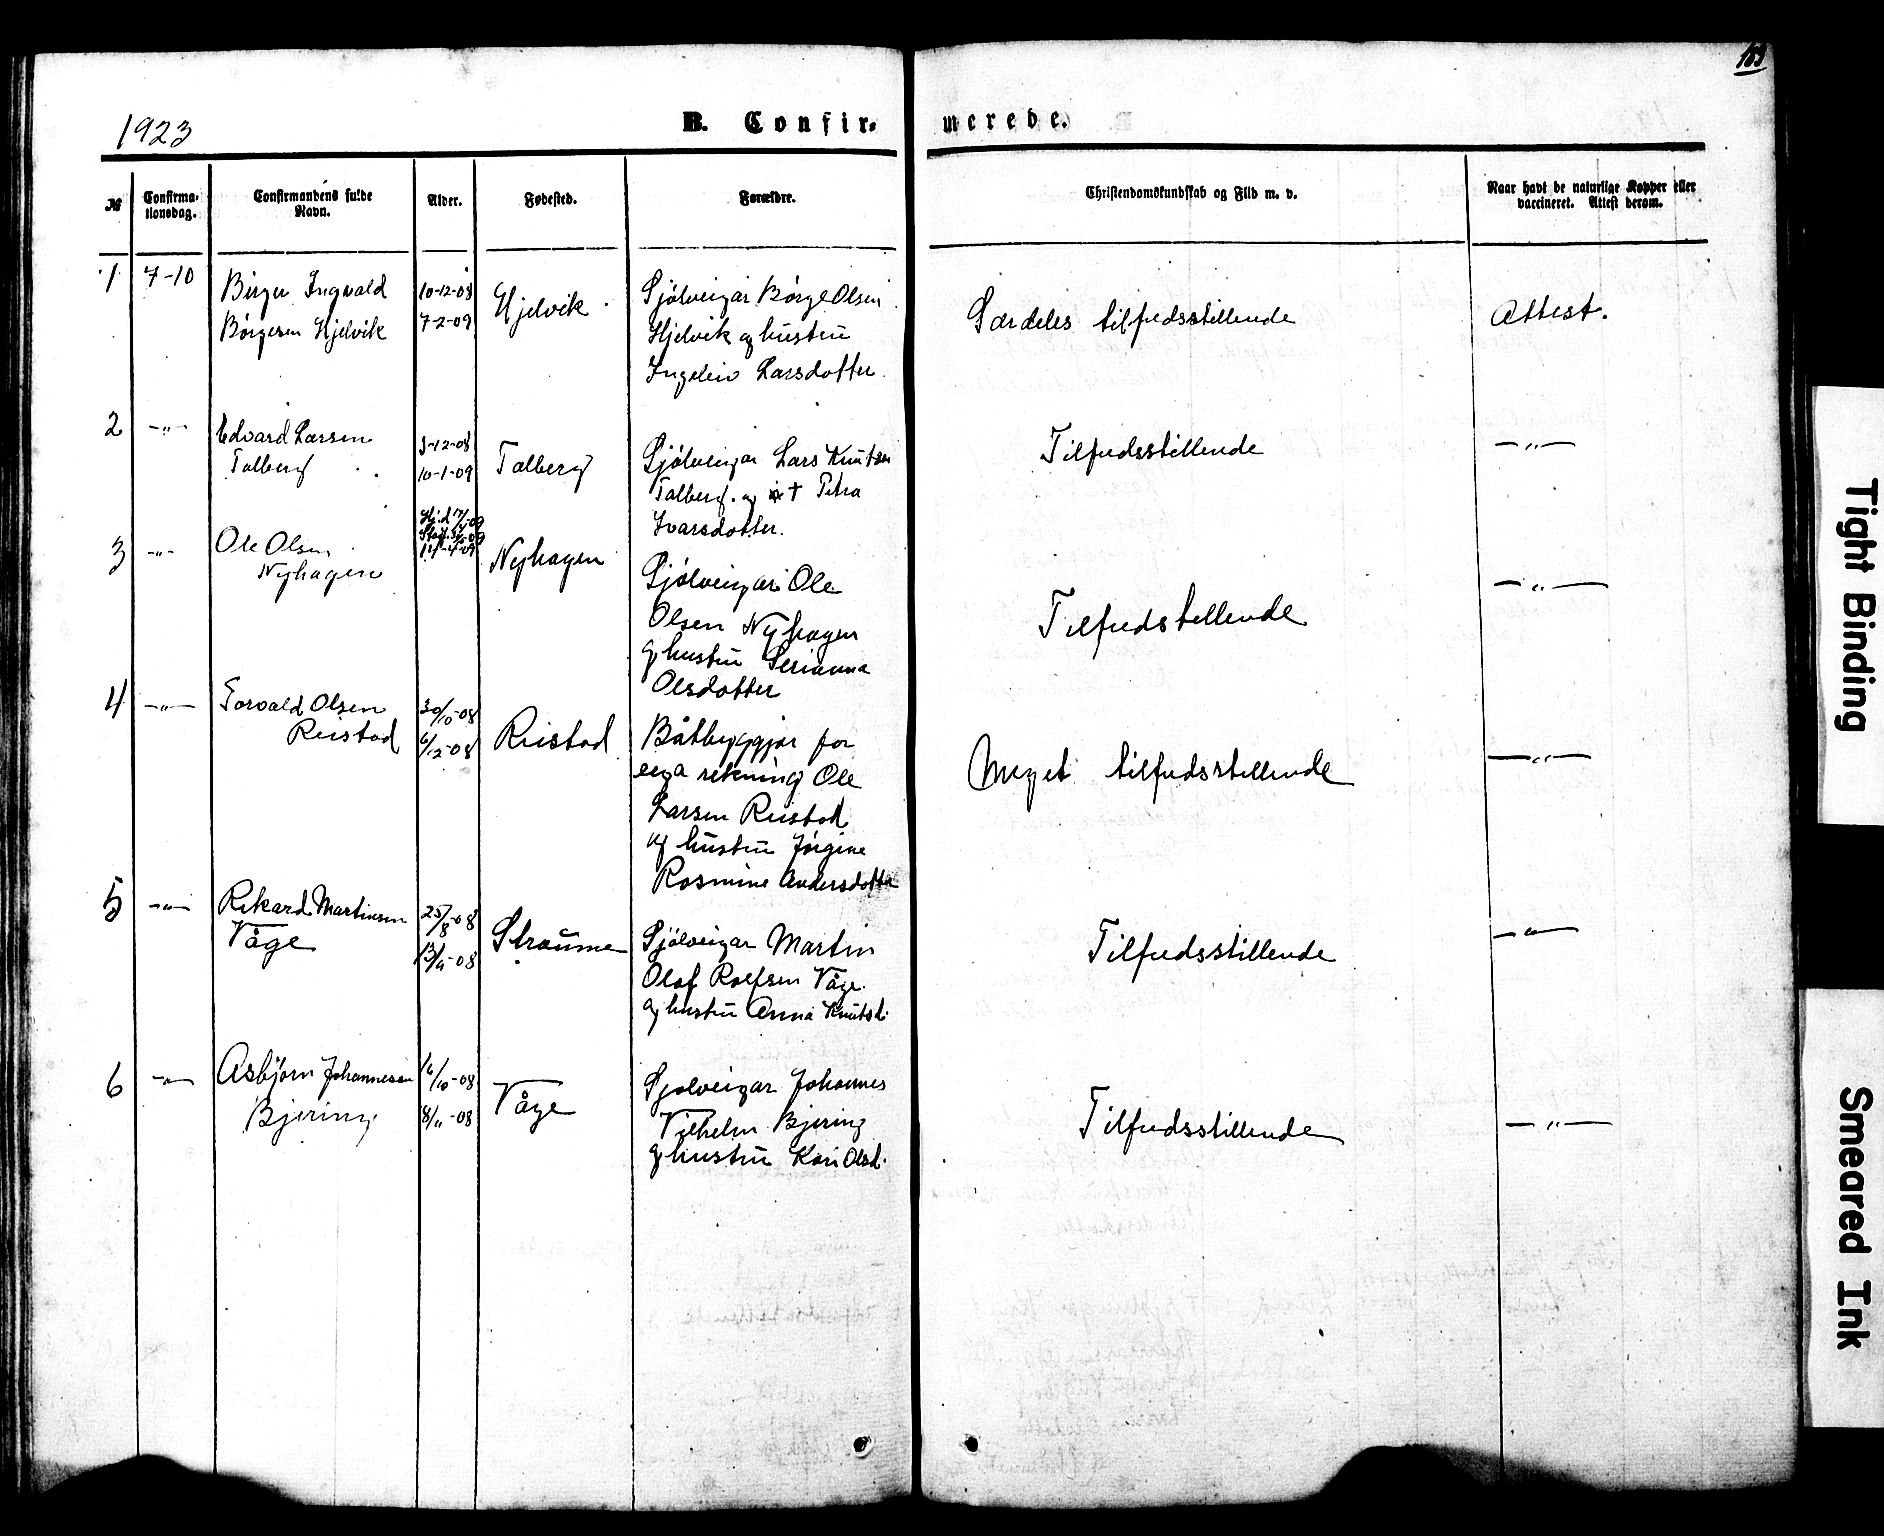 1923
B. Confir-
merede.
№
Confirma-
tionsdag.
Confirmandens fulde
Navn.
Alder.
Fødested.
Forældre.
Christendomskundskab og Flid m. v.
Naar havt de naturlige Kopper eller
vaccineret. Attest derom.
1
7-10
Birger Ingvald
Børgesen Hjelvik
10-12-08
7-2-09
Hjelvik
Sjølveigar Børge Olsen
Hjelvik og hustru
Larsdotter
Særdeles tilfredsstillende
Attest.
2
-"-
Edvard Larsen
Talberg
3-12-08
10-1-09
Talberg
Sjølveigar Lars Knutsen
Talberg og † Petra
Ivarsdotter.
Tilfredsstillende
-"-
3
-"-
Ole Olsen
Nyhagen
Nyhagen
Sjølveigar Ole
Olsen Nyhagen
og hustru Serianna
Olsdotter
Tilfredstillende
-"-
4
-"-
Torvald Olsen
Reistad
30/10-08
6/12-08
Reistad
Båtbyggjar for
eiga rekning Ole
Larsen Reistad
og hustru Jørgine
Rosmine Andersdotter
Meget tilfredsstillende
-"-
5
-"-
Rikard Martinsen
Våge
25/8-08
Straume
Sjølveigar Martin
Olaf Rolfsen Våge
og hustru Anna Knutsd.
Tilfredsstillende
-"-
6
-"-
Asbjørn Johannesen
Bjering
16/10-08
8/11-08
Våge
Sjølveigar Johannes
Vilhelm Bjering
og hustru Kari Olsd.
Tilfredsstillende
-"-
Tight Binding
Smeared Ink